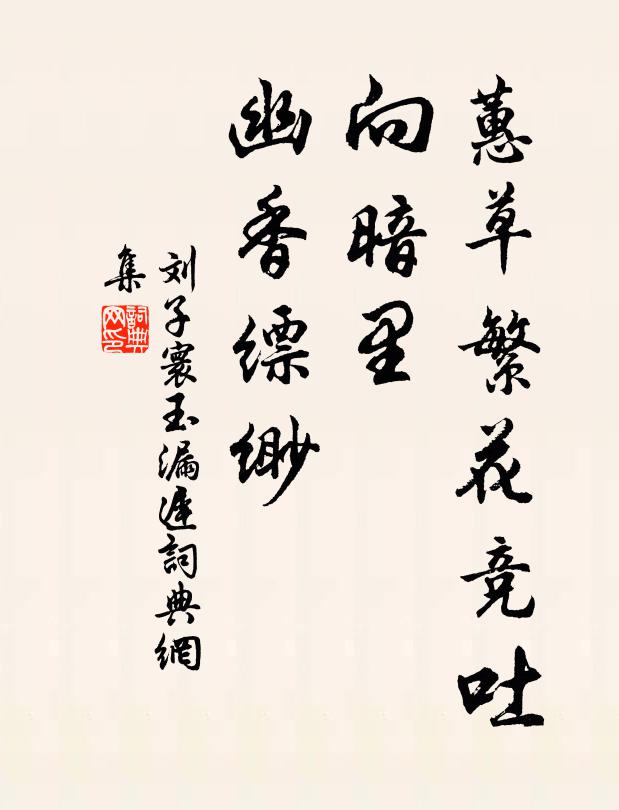 蕙草繁花竞吐
向暗里
幽香缥缈
刘子寰玉漏遲詞典網
集
詞典网印